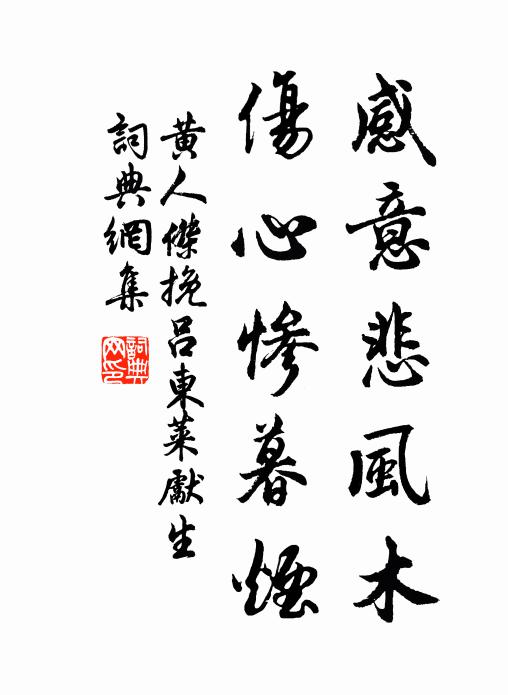 感意悲風木
傷心慘暮煙
黃人傑挽呂東萊獻生
詞典網集